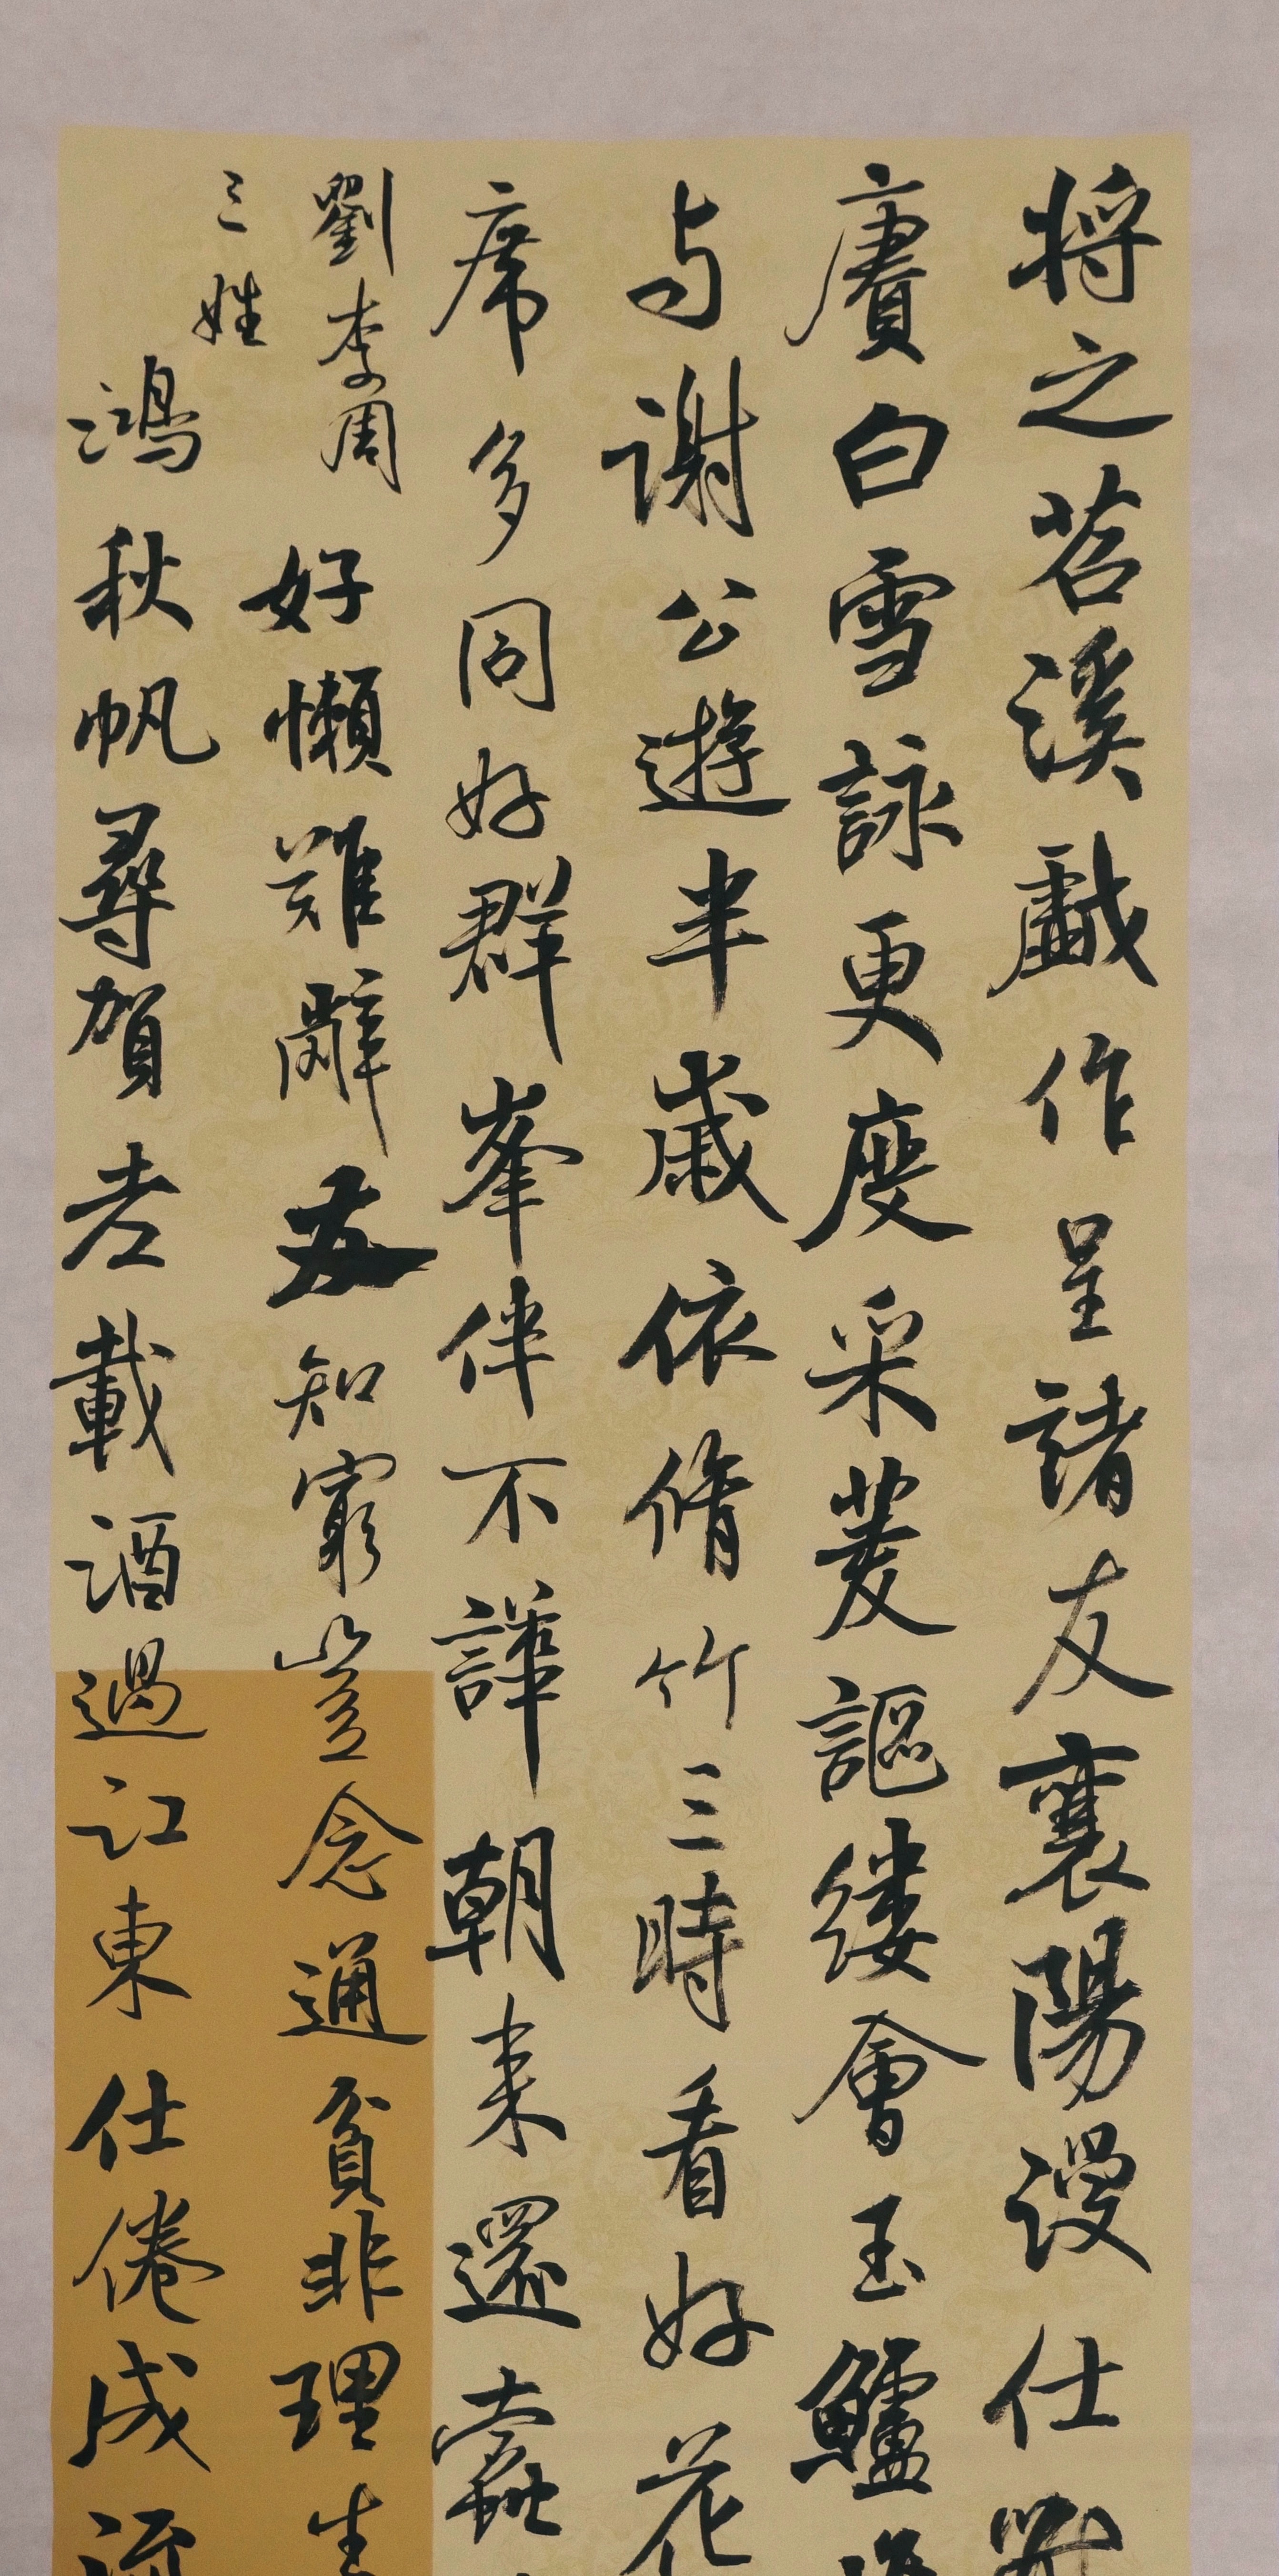 将之苕溪戲作呈諸友襄陽漫仕黻
賡白雪詠更度采菱謳缕會玉鱸
与謝公遊半歲依脩竹三時看好花
席多同好群峯伴不譁朝来還蠹
劉李周
三姓
好懶難辭友知窮豈念通貧非理生
鴻秋帆尋賀老載酒過江東仕倦成流